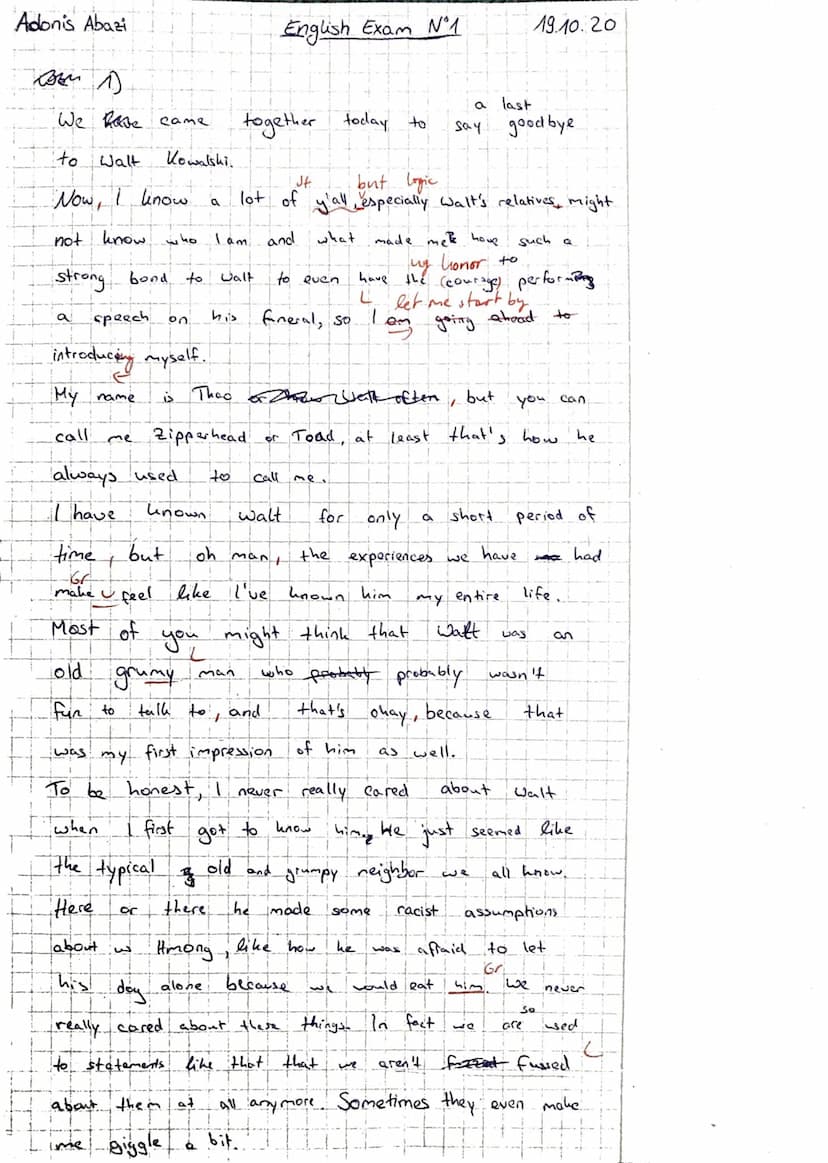 Adonis Abazi English Exam N°1 19.10.20
1)
a last
We have came together today to say goodbye
to Walt Kowalski.
St but logic
Now, I know a lot of y'all, especially Walt's relatives, might
not know who I am and what made me have such a
my honor to
strong bond to Walt to even have the (courage) performing
L let me start by
a speech on his funeral, so I am going ahead to
introducing myself.
My name is Thao or Walt often, but you can
call me Zipperhead or Toad, at least that's how he
always used to call me.
I have known Walt for only a short period of
time, but oh man, the experiences we have had
Gr
make feel like I've known him my entire life.
Most of you might think that Walt was an
L
old grumy man who probably probably wasn't
fun to talk to, and that's okay, because that
was my first impression of him as well.
To be honest, I never really cared about Walt
when I first got to know him. He just seemed like
the typical old and grumpy neighbor we all know.
Here or there he made some racist assumptions
about us Hmong, like how he was afraid to let
Gr
his dog alone because we would eat him. We never
so
really cared about these things. In fact we are used
L
to statements like that that we aren't fussed
about them at all anymore. Sometimes they even make
me giggle a bit.